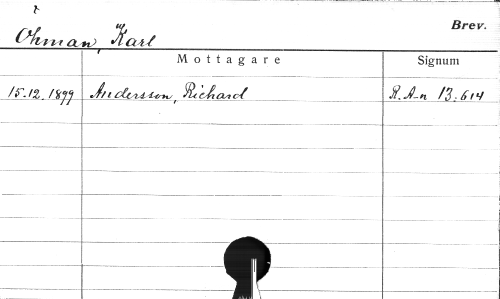 Brev.
Öhman, Karl
Mottagare Signum
15.12.1899 Andersson, Richard R.A-n 13:614